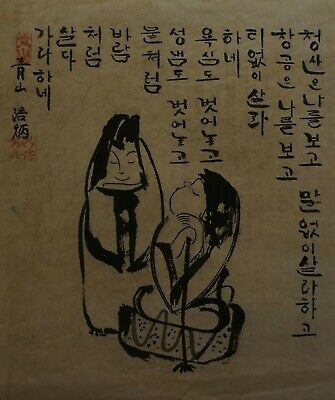 청산은나를보고 말없이살라하고
창공은나를보고
티없이살라
하네
욕심도 벗어놓고
성냄도 벗어놓고
물처럼
바람
처럼
살다
가라하네
青山